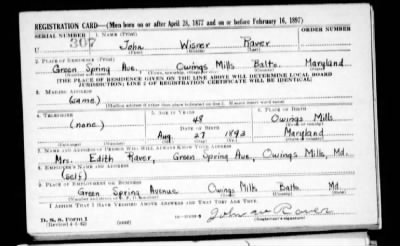 REGISTRATION CARD—(Men born on or after April 28, 1877 and on or before February 16, 1897)
SERIAL NUMBER 1. NAME (Print) ORDER NUMBER
U 307 John Wisner Raver
(First) (Middle) (Last)
2. PLACE OF RESIDENCE (Print)
Green Spring Ave. Owings Mills Balto. Maryland
[THE PLACE OF RESIDENCE GIVEN ON THE LINE ABOVE WILL DETERMINE LOCAL BOARD
JURISDICTION; LINE 2 OF REGISTRATION CERTIFICATE WILL BE IDENTICAL]
3. MAILING ADDRESS
(same)
[Mailing address if other than place indicated on line 2. If same insert word same]
4. TELEPHONE 5. AGE IN YEARS 6. PLACE OF BIRTH
(none) 48 Owings Mills
DATE OF BIRTH
Aug 27 1893 Maryland
7. NAME AND ADDRESS OF PERSON WHO WILL ALWAYS KNOW YOUR ADDRESS
Mrs. Edith Raver, Green Spring Ave., Owings Mills, Md.
8. EMPLOYER'S NAME AND ADDRESS
(self)
9. PLACE OF EMPLOYMENT OR BUSINESS
Green Spring Avenue Owings Mills Balto. Md.
I AFFIRM THAT I HAVE VERIFIED ABOVE ANSWERS AND THAT THEY ARE TRUE.
D. S. S. Form 1 John W Raver
(Revised 4-1-42) (over) (Registrant's signature)